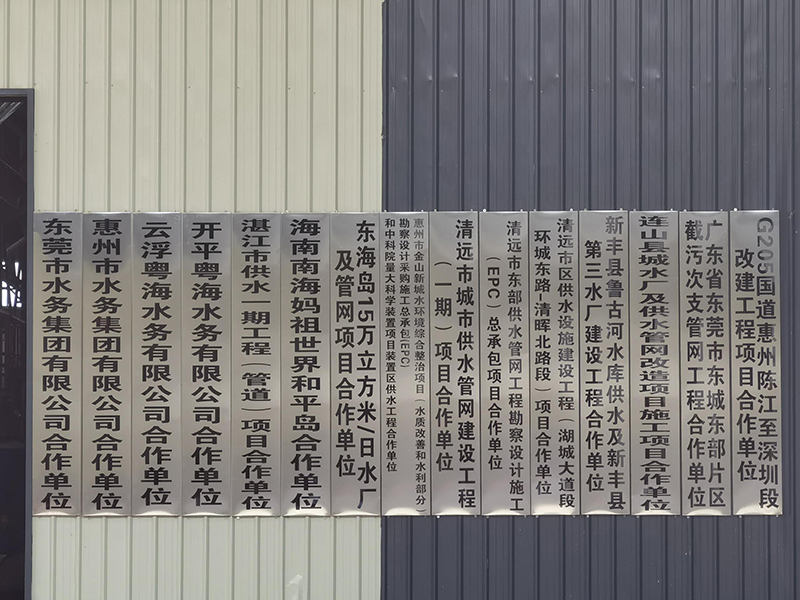 东莞市水务集团有限公司合作单位
惠州市水务集团有限公司合作单位
云浮粤海水务有限公司合作单位
开平粤海水务有限公司合作单位
湛江市供水一期工程（管道）项目合作单位
海南南海妈祖世界和平岛合作单位
东海岛15万立方米/日水厂
及管网项目合作单位
惠州市金山新城水环境综合整治项目（水质改善和水利部分）
勘察设计采购施工总承包(EPC)
和中科院量大科学装置项目装置区供水工程合作单位
清远市城市供水管网建设工程
（一期）项目合作单位
清远市东部供水管网工程勘察设计施工
（EPC）总承包项目合作单位
清远市区供水设施建设工程（湖城大道段
环城东路-清晖北路段）项目合作单位
新丰县鲁古河水库供水及新丰县
第三水厂建设工程合作单位
连山县城水厂及供水管网改造项目施工项目合作单位
广东省东莞市东城东部片区
截污次支管网工程合作单位
G205国道惠州陈江至深圳段
改建工程项目合作单位